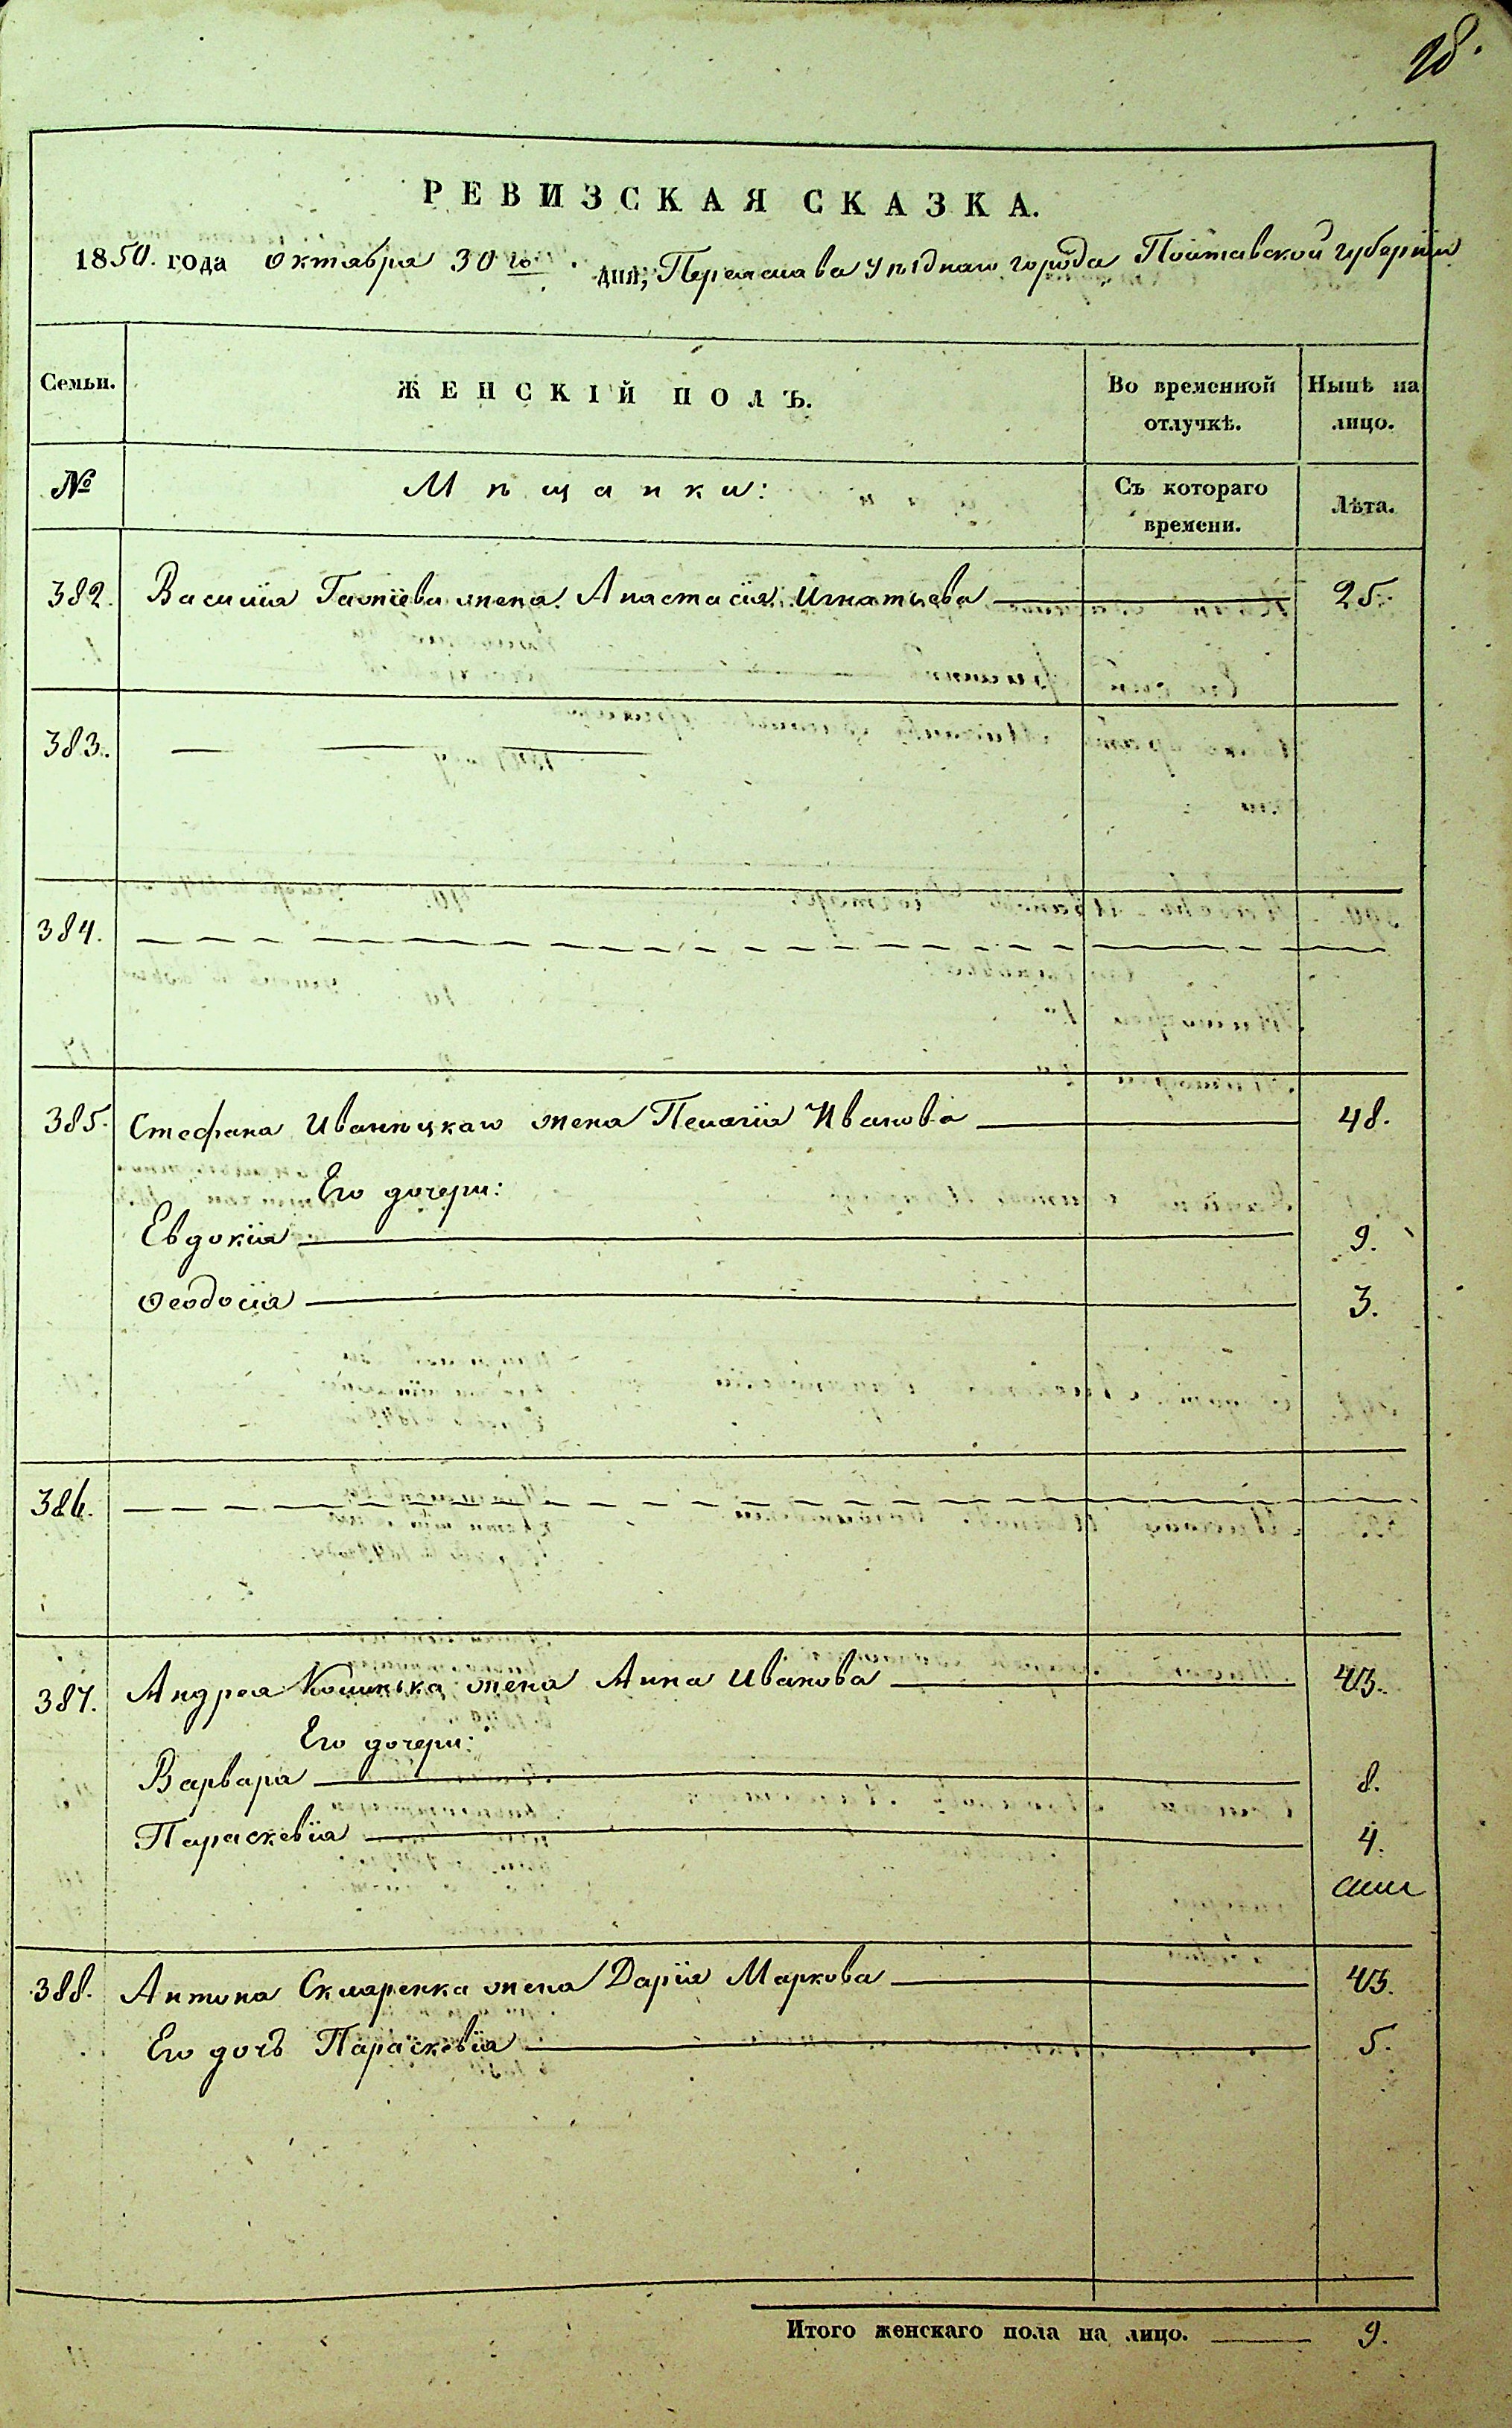 28.
РЕВИЗСКАЯ СКАЗКА.
1850. года октября 30го дня, Переяслава уѣзднаго города Полтавской губерніи
Семьи. ЖЕНСКІЙ ПОЛЪ. Во временной отлучкѣ. Нынѣ на лицо.
№ Мѣщанки: Съ котораго времени. Лѣта.
382. Василія жена Анастасія Игнатьева 25.
383.
384.
385. Стефана Иваницкаго жена Пелагія Иванова 48.
Его дочери:
Евдокія 9.
Ѳеодосія 3.
386.
387. Андрея жена Анна Иванова 43.
Его дочери:
Варвара 8.
Параскевія 4.
388. Антона Скляренка жена Дарія Маркова 43.
Его дочь Параскевія 5.
Итого женскаго пола на лицо. 9.